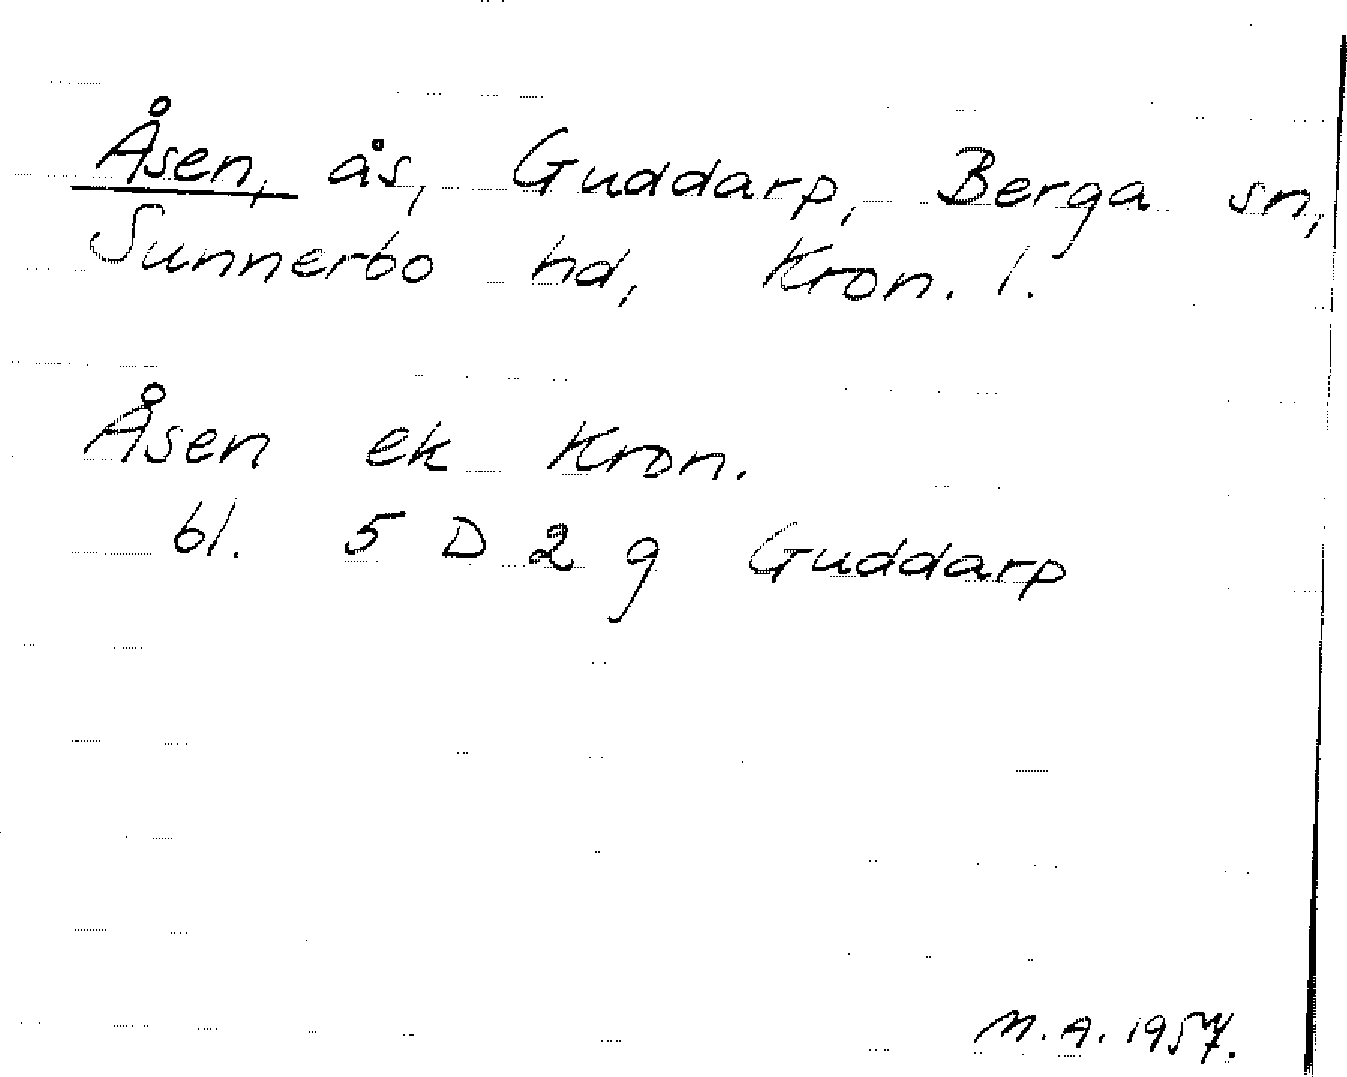 Åsen, ås, Guddarp, Berga sn,
Sunnerbo hd, Kron. l.
Åsen ek Kron.
bl. 5 D 2 g Guddarp
M.A. 1957.